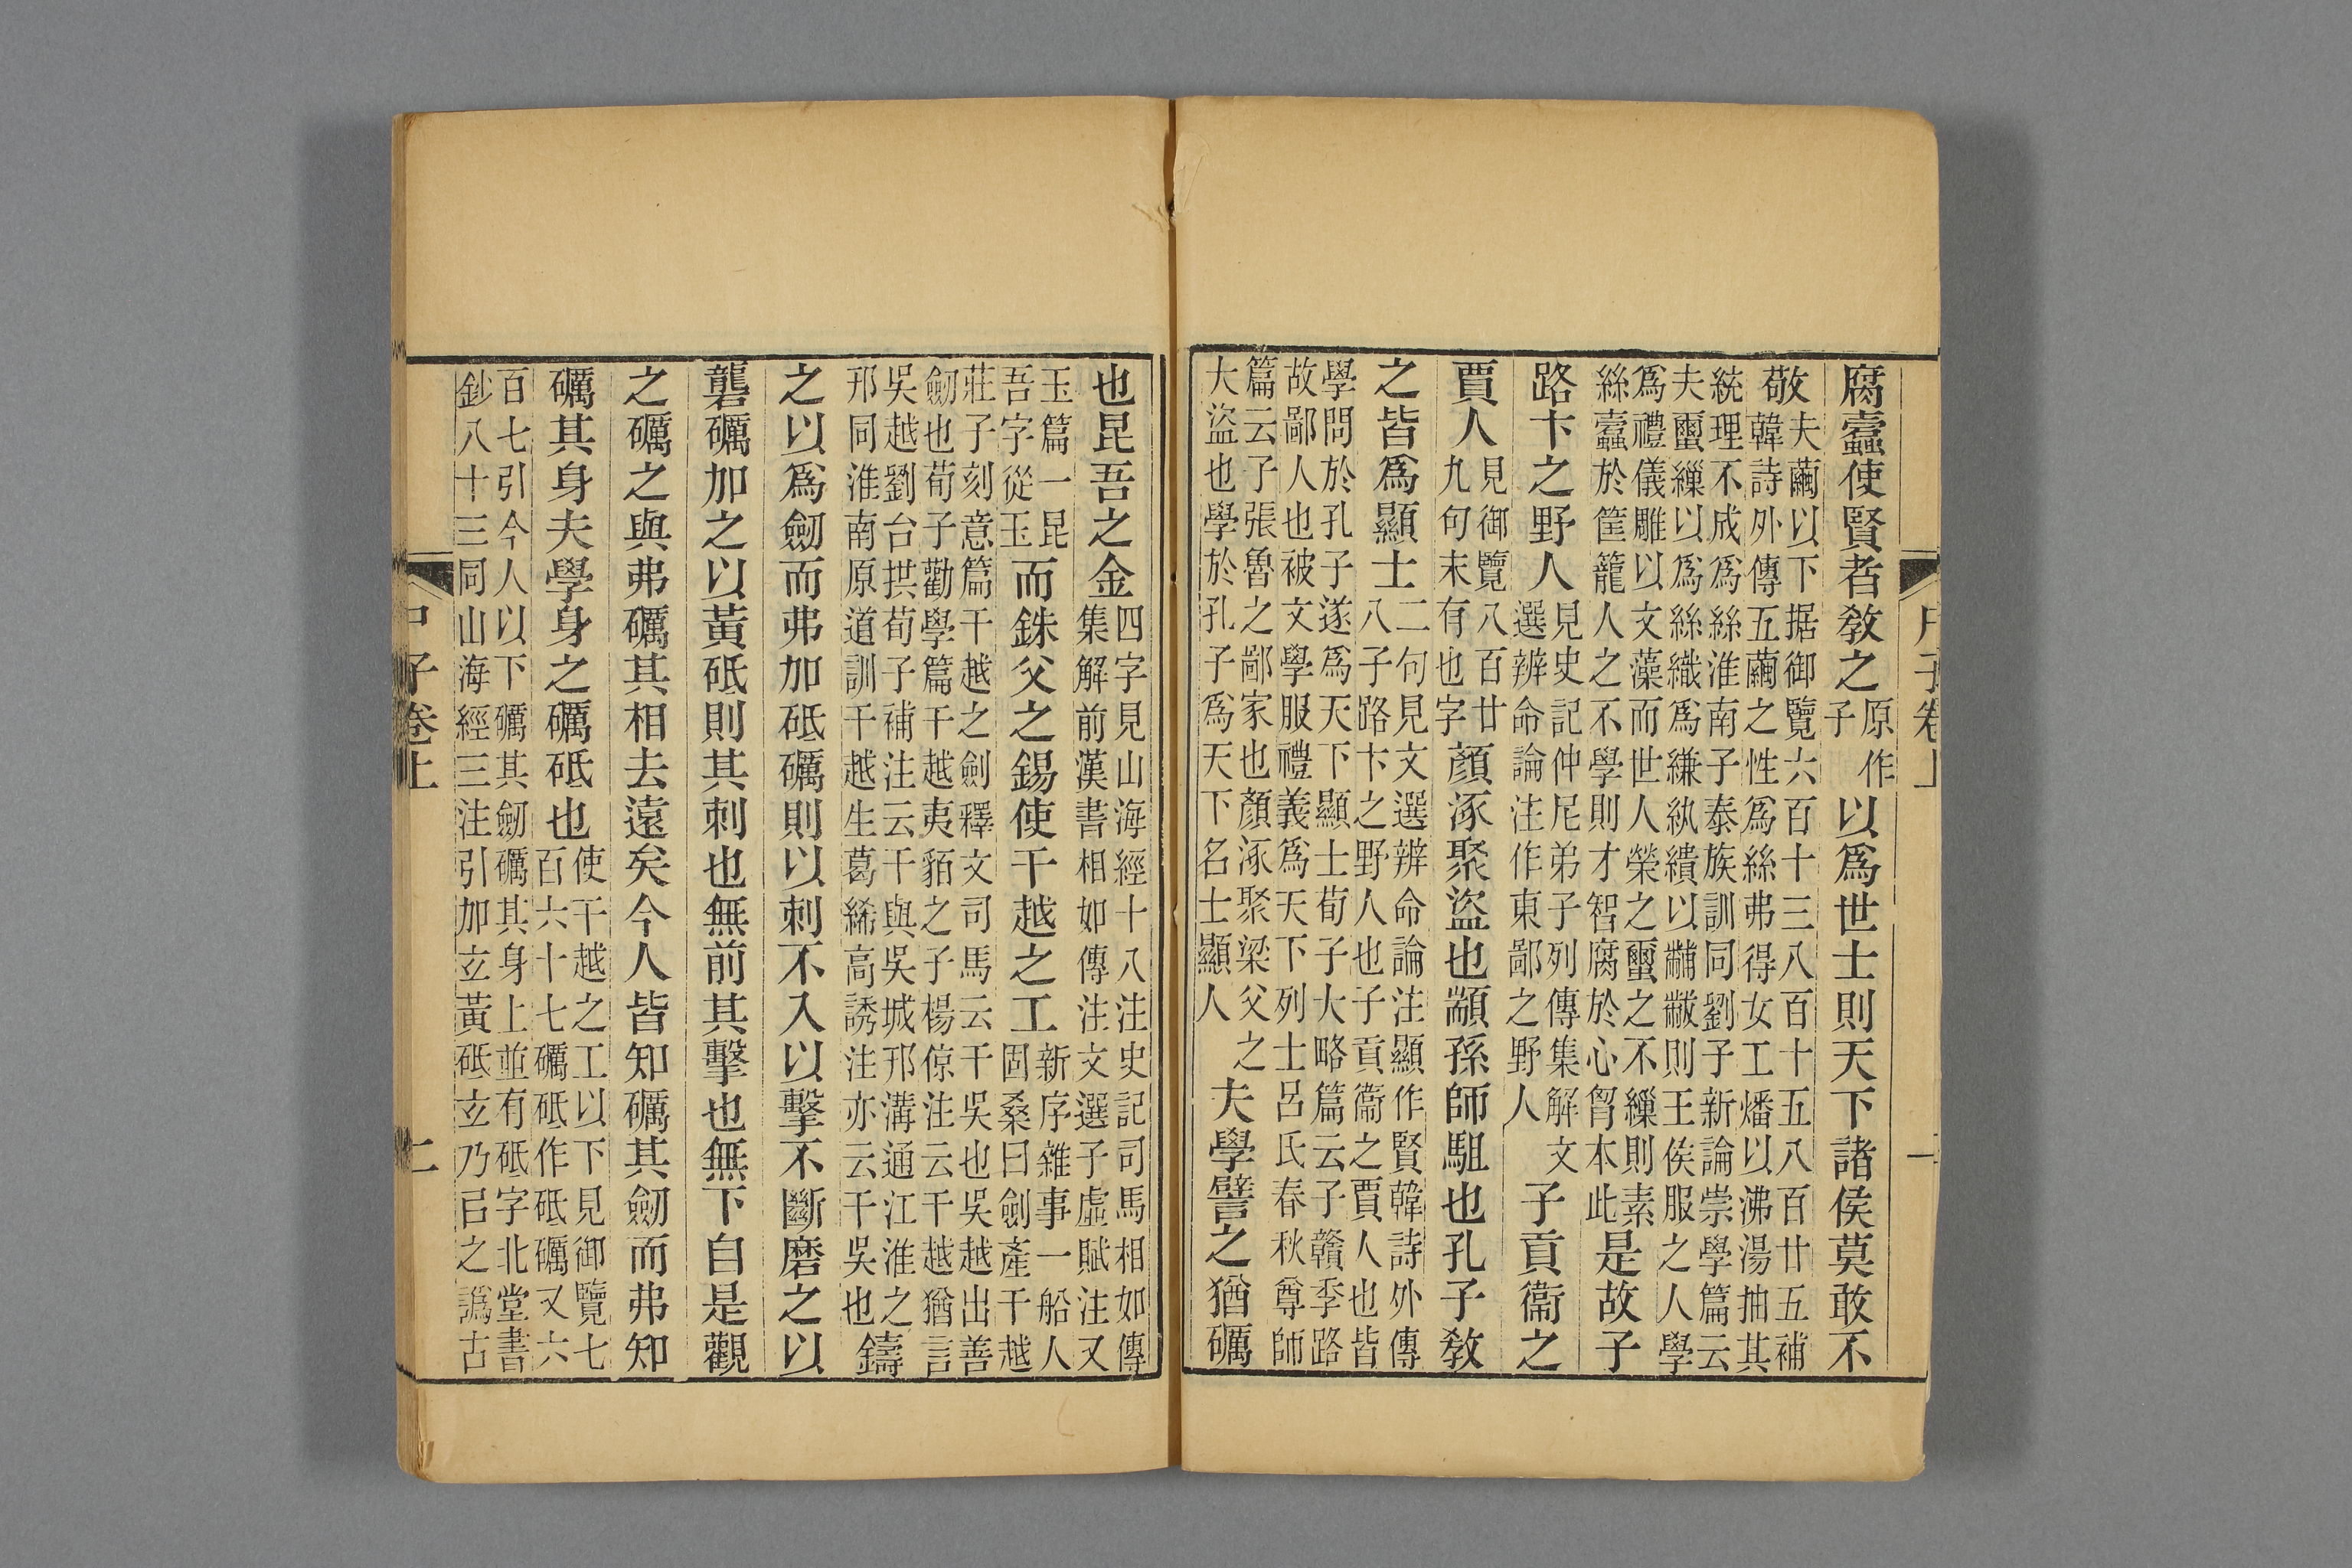 尸子卷上
腐蠹使賢者敎之原作子以爲世士則天下諸侯莫敢不
敬夫繭以下据御覽六百十三八百十五八百廿五補韓詩外傳五繭之性爲絲弗得女工燔以沸湯抽其
統理不成爲絲淮南子泰族訓同劉子新論崇學篇云
夫蠒繅以爲絲織爲縑紈繢以黼黻則王侯服之人學
爲禮儀雕以文藻而世人榮之蠒之不繅則素
絲蠹於筐籠人之不學則才智腐於心胷本此是故子
路卞之野人見史記仲尼弟子列傳集解文選辨命論注作東鄙之野人子貢衞之
賈人見御覽八百廿九句末有也字顏涿聚盜也顓孫師駔也孔子敎
之皆爲顯士二句見文選辨命論注顯作賢韓詩外傳八子路卞之野人也子貢衞之賈人也皆
學問於孔子遂爲天下顯士荀子大略篇云子贛季路
故鄙人也被文學服禮義爲天下列士呂氏春秋尊師
篇云子張魯之鄙家也顏涿聚梁父之
大盜也學於孔子爲天下名士顯人夫學譬之猶礪
也昆吾之金四字見山海經十八注史記司馬相如傳集解前漢書相如傳注文選子虛賦注又
玉篇一昆吾字從玉而銖父之錫使干越之工新序雜事一船人固桑曰劍產干越
莊子刻意篇干越之劍釋文司馬云干吳也吳越出善
劒也荀子勸學篇干越夷貊之子楊倞注云干越猶言
吳越劉台拱荀子補注云干與吳城邗溝通江淮之
邗同淮南原道訓干越生葛絺高誘注亦云干吳也鑄
之以爲劒而弗加砥礪則以刺不入以擊不斷磨之以
礱礪加之以黃砥則其刺也無前其擊也無下自是觀
之礪之與弗礪其相去遠矣今人皆知礪其劒而弗知
礪其身夫學身之礪砥也使干越之工以下見御覽七百六十七礪砥作砥礪又六
百七引今人以下礪其劒礪其身上並有砥字北堂書
鈔八十三同山海經三注引加玄黃砥玄乃㠯之譌古
子卷上
二